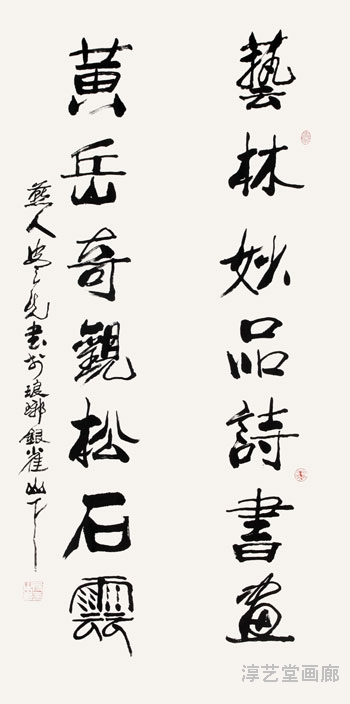 藝林妙品詩書畫
黃岳奇觀松石雲
燕人 先书於琅琊銀雀山下
淳艺堂画廊